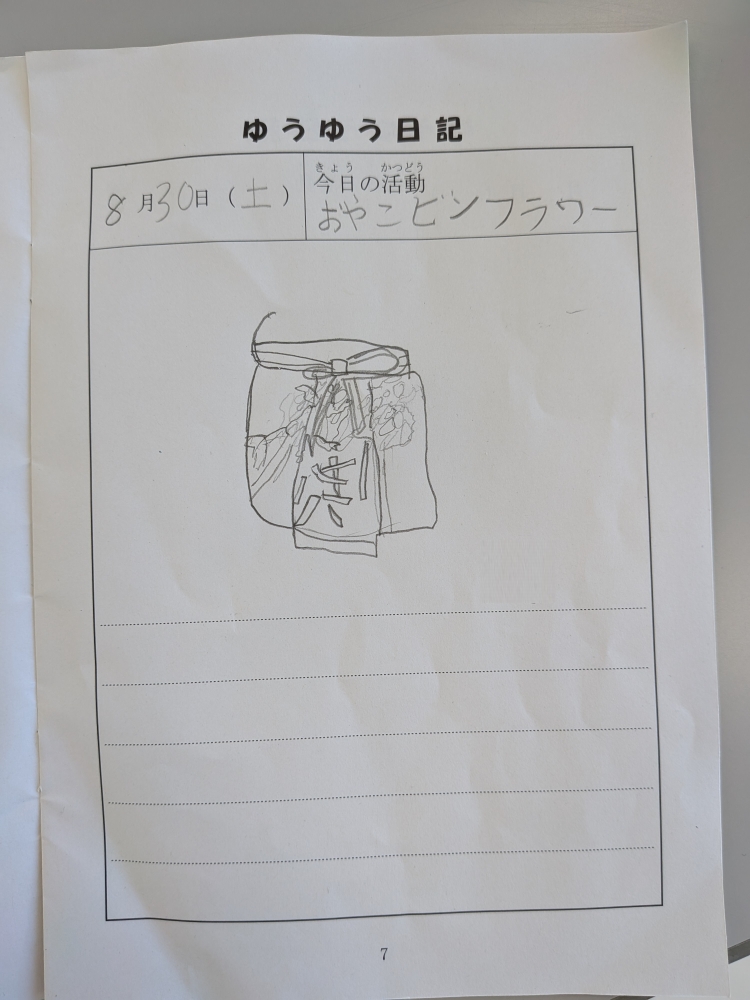 ゆうゆう日記
8月30日(土)
きょう かつどう
今日の活動
おやこビンフラワー
7